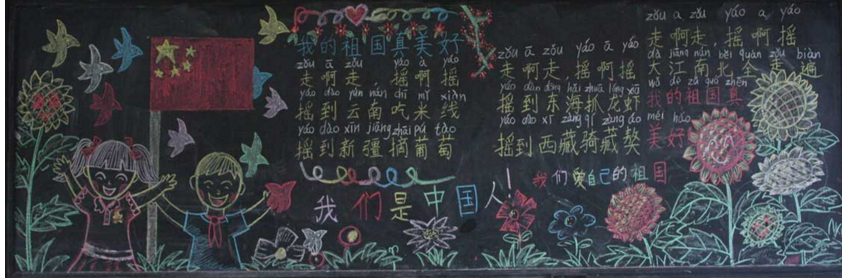 我的祖国真美好
zǒu a zǒu yáo a yáo
走啊走，摇啊摇
yáo dào yún nán chī mǐ xiàn
摇到云南吃米线
yáo dào xīn jiāng zhāi pú tao
摇到新疆摘葡萄
我们是中国人！
zǒu ā zǒu yáo ā yáo
走啊走，摇啊摇
yáo dào dōng hǎi zhuā lóng xiā
摇到东海抓龙虾
yáo dào xī zàng qí zàng áo
摇到西藏骑藏獒
我们爱自己的祖国
zǒu a zǒu yáo a yáo
走啊走，摇啊摇
dà jiāng nán běi quán zǒu biàn
大江南北全走遍
wǒ de zǔ guó zhēn
我的祖国真
měi hǎo
美好